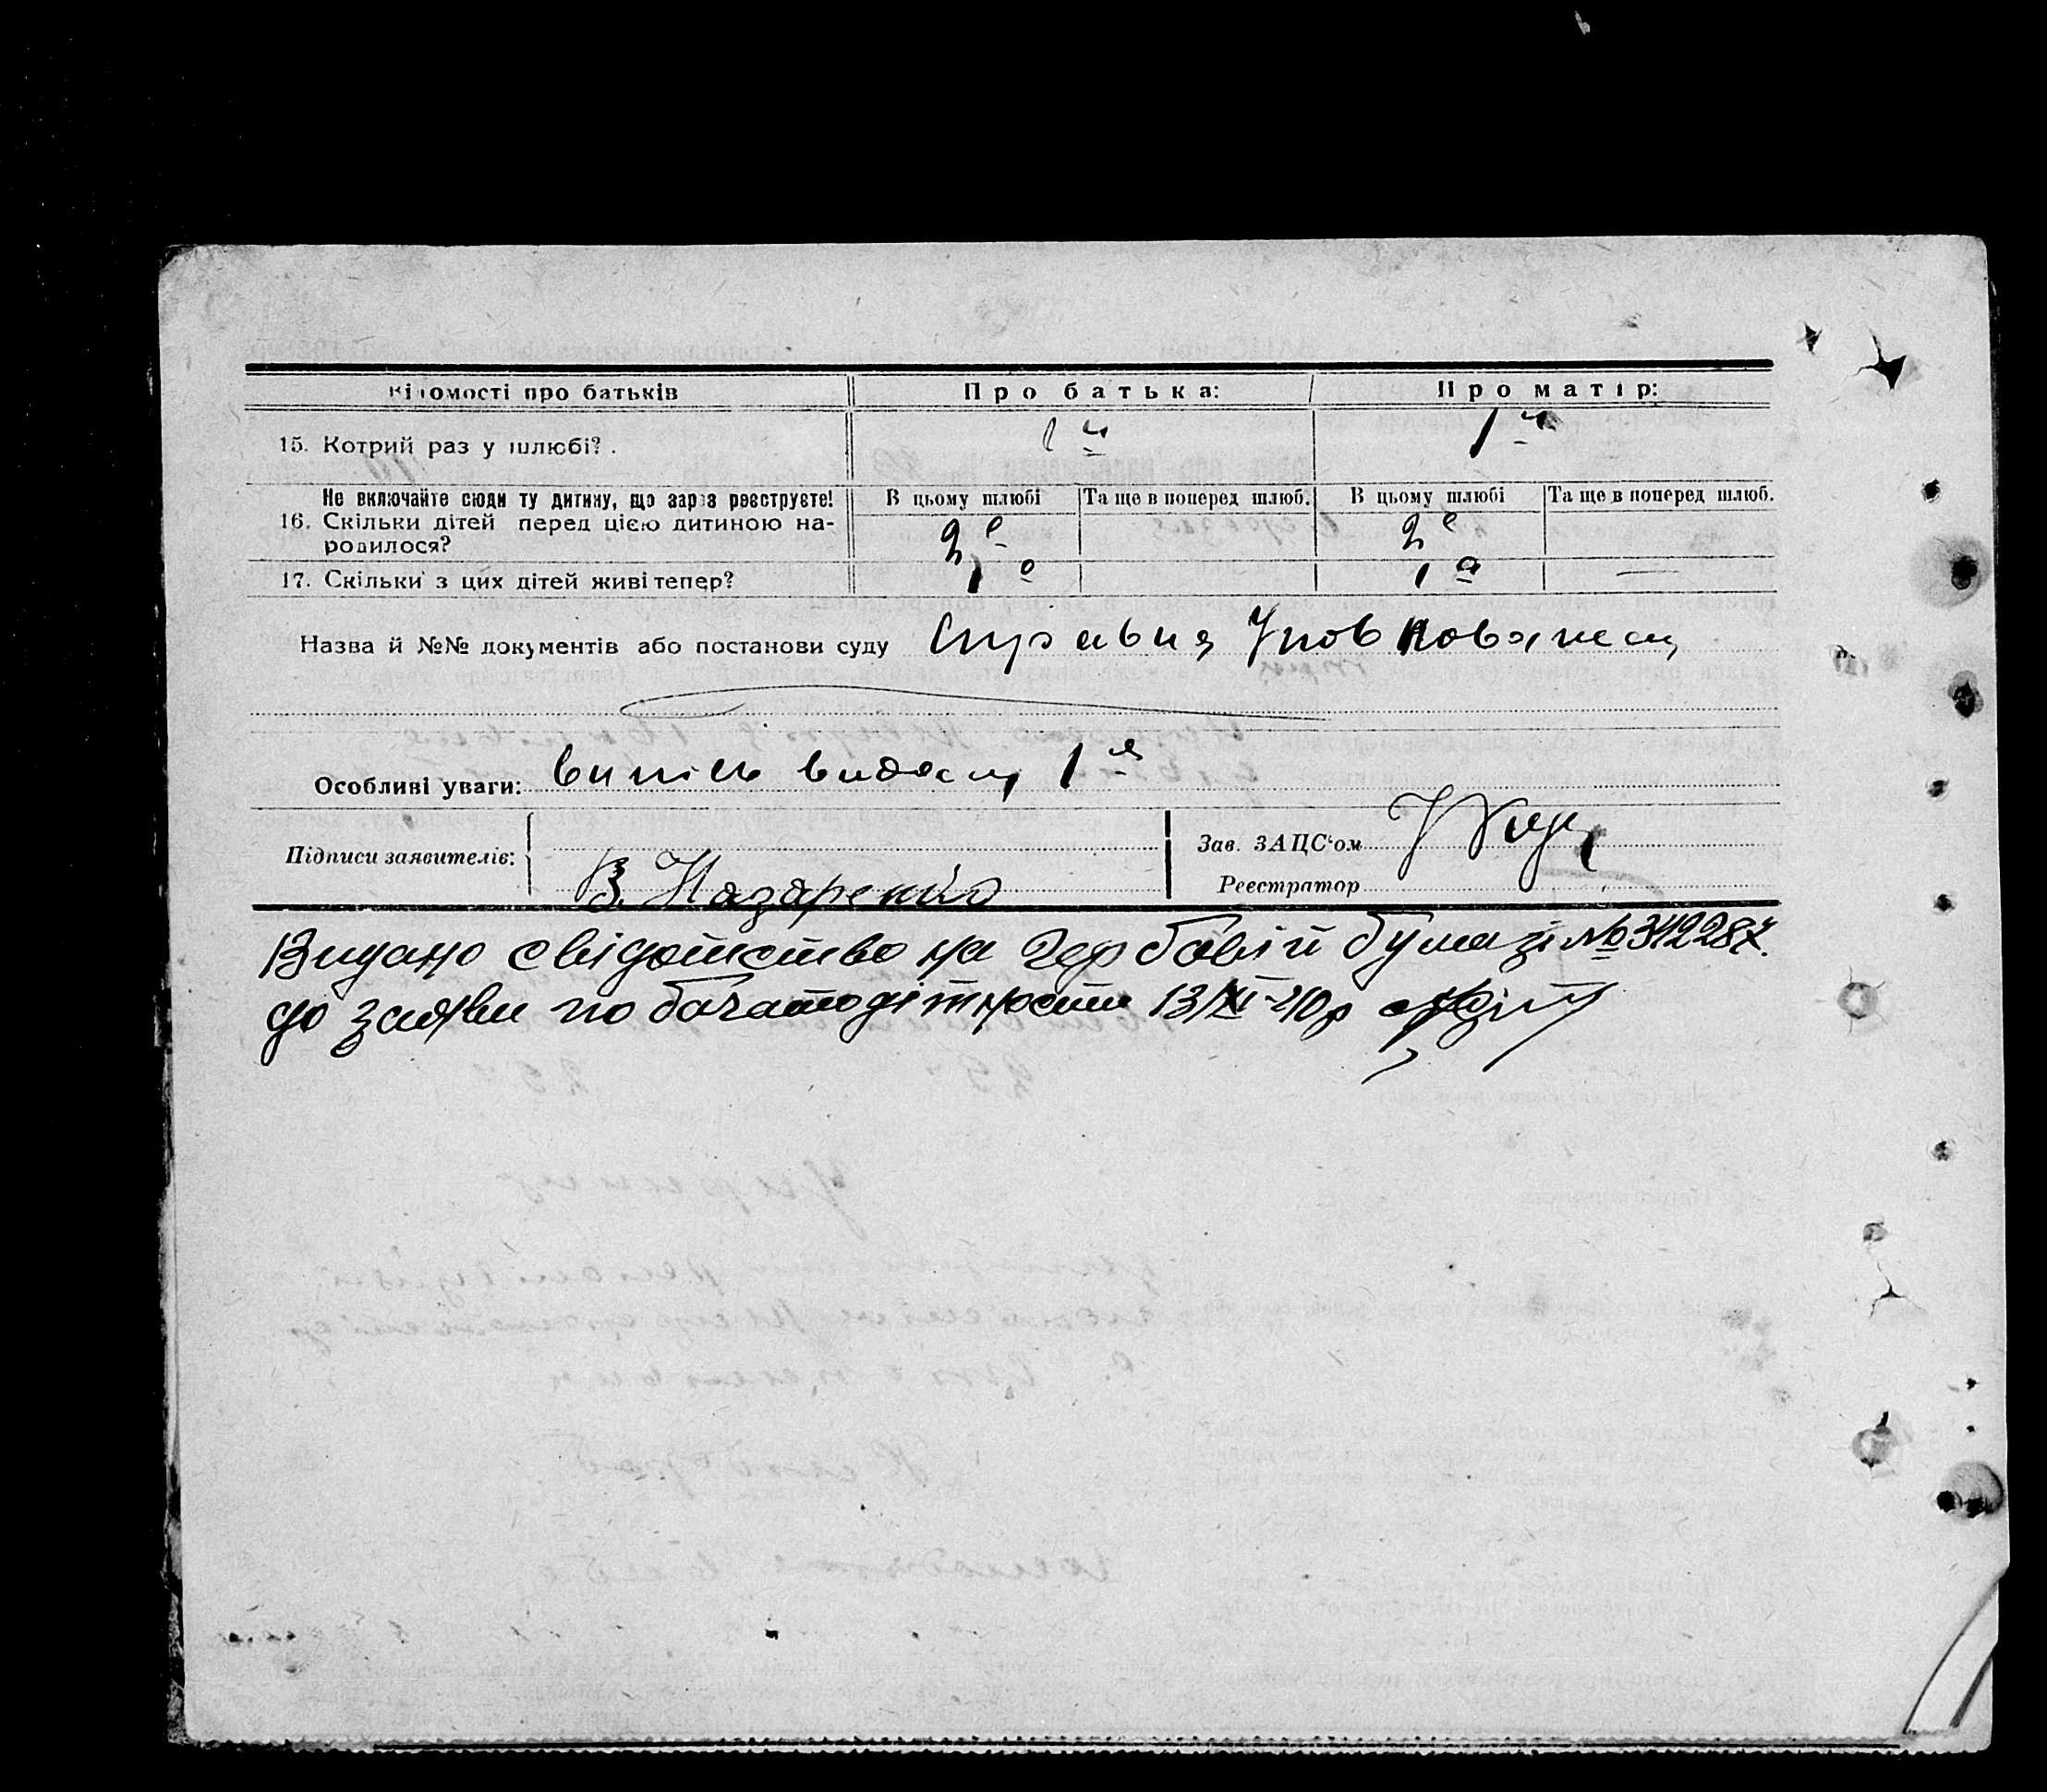 Відомості про батьків Про батька: Про матір:
15. Котрий раз у шлюбі? . 1й 1й
Не включайте сюди ту дитину, що зараз реєструєте! В цьому шлюбі Та ще в поперед шлюб. В цьому шлюбі Та ще в поперед шлюб.
16. Скільки дітей перед цією дитиною на- 2е 2е
родилося?
17. Скільки з цих дітей живі тепер? 1о 1а —
Назва й №№ документів або постанови суду Справка
Особливі уваги: випись 1я
Підписи заявителів: Зав. ЗАЦС‘ом
В. Назаренко Реєстратор
Видано свідотство на гербовій бумазі № 342287.
до заяви по багатодітности 13/XI-40р